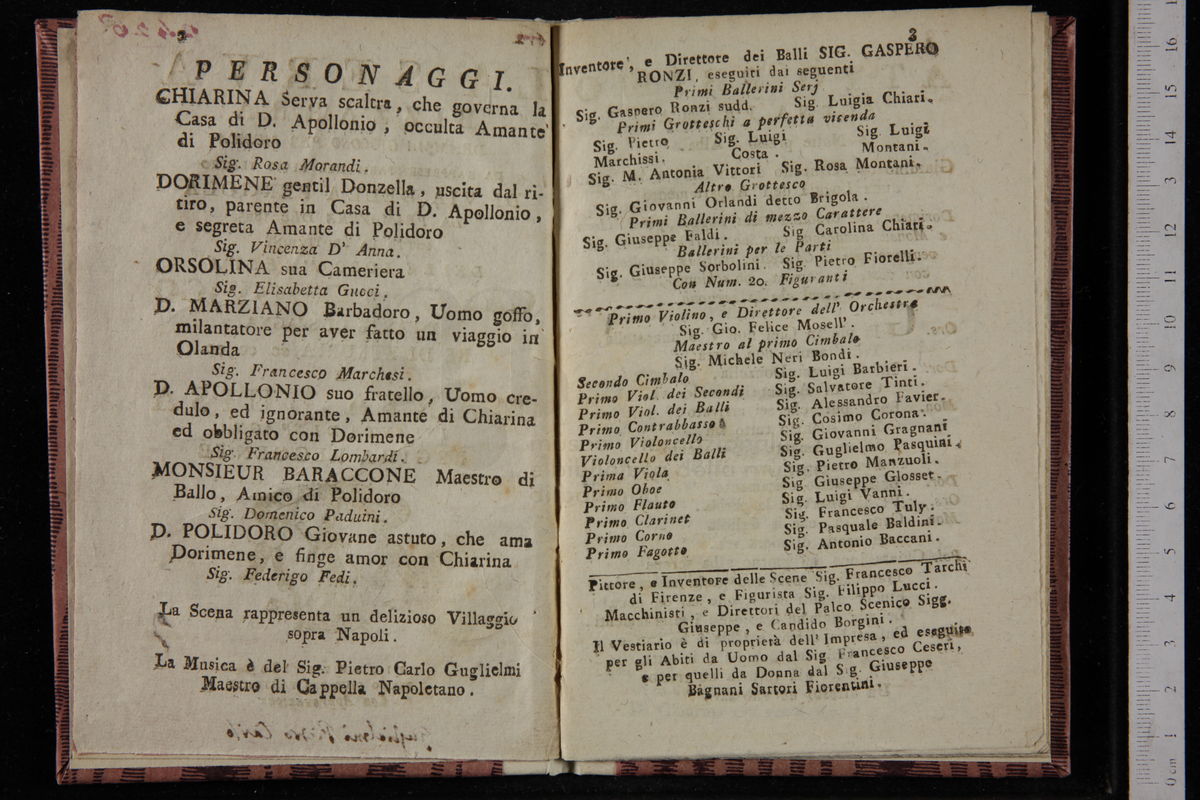 2
PERSONAGGI.
CHIARINA Serva scaltra, che governa la
Casa di D. Apollonio, occulta Amante
di Polidoro
Sig. Rosa Morandi.
DORIMENE gentil Donzella, uscita dal ri-
tiro, parente in Casa di D. Apollonio,
e segreta Amante di Polidoro
Sig. Vincenza D' Anna.
ORSOLINA sua Cameriera
Sig. Elisabetta Gucci.
D. MARZIANO Barbadoro, Uomo goffo,
milantatore per aver fatto un viaggio in
Olanda
Sig. Francesco Marchesi.
D. APOLLONIO suo fratello, Uomo cre-
dulo, ed ignorante, Amante di Chiarina
ed obbligato con Dorimene
Sig. Francesco Lombardi.
MONSIEUR BARACCONE Maestro di
Ballo, Amico di Polidoro
Sig. Domenico Paduini.
D. POLIDORO Giovane astuto, che ama
Dorimene, e finge amor con Chiarina
Sig. Federigo Fedi.
La Scena rappresenta un delizioso Villaggio
sopra Napoli.
La Musica è del Sig. Pietro Carlo Guglielmi
Maestro di Cappella Napoletano.
3
Inventore, e Direttore dei Balli SIG. GASPERO
RONZI, eseguiti dai seguenti
Primi Ballerini Serj
Sig. Gaspero Ronzi sudd. Sig. Luigia Chiari.
Primi Grotteschi a perfetta vicenda
Sig. Pietro Sig. Luigi Sig. Luigi
Marchissi. Costa. Montani.
Sig. M. Antonia Vittori Sig. Rosa Montani.
Altro Grottesco
Sig. Giovanni Orlandi detto Brigola.
Primi Ballerini di mezzo Carattere
Sig. Giuseppe Faldi. Sig Carolina Chiari.
Ballerini per le Parti
Sig. Giuseppe Sorbolini. Sig. Pietro Fiorelli.
Con Num. 20. Figuranti
Primo Violino, e Direttore dell' Orchestra
Sig. Gio. Felice Mosell'.
Maestro al primo Cimbalo
Sig. Michele Neri Bondi.
Secondo Cimbalo Sig. Luigi Barbieri.
Primo Viol. dei Secondi Sig. Salvatore Tinti.
Primo Viol. dei Balli Sig. Alessandro Favier.
Primo Contrabbasso Sig. Cosimo Corona.
Primo Violoncello Sig. Giovanni Gragnani
Violoncello dei Balli Sig. Guglielmo Pasquini.
Prima Viola Sig. Pietro Manzuoli.
Primo Oboe Sig Giuseppe Glosset.
Primo Flauto Sig. Luigi Vanni.
Primo Clarinet Sig. Francesco Tuly.
Primo Corno Sig. Pasquale Baldini.
Primo Fagotto Sig. Antonio Baccani.
Pittore, e Inventore delle Scene Sig. Francesco Tarchi
di Firenze, e Figurista Sig. Filippo Lucci.
Macchinisti, e Direttori del Palco Scenico Sigg.
Giuseppe, e Candido Borgini.
Il Vestiario è di proprietà dell' Impresa, ed eseguito
per gli Abiti da Uomo dal Sig Francesco Ceseri,
e per quelli da Donna dal Sig. Giuseppe
Bagnani Sartori Fiorentini.
0 cm 1 2 3 4 5 6 7 8 9 10 11 12 13 14 15 16